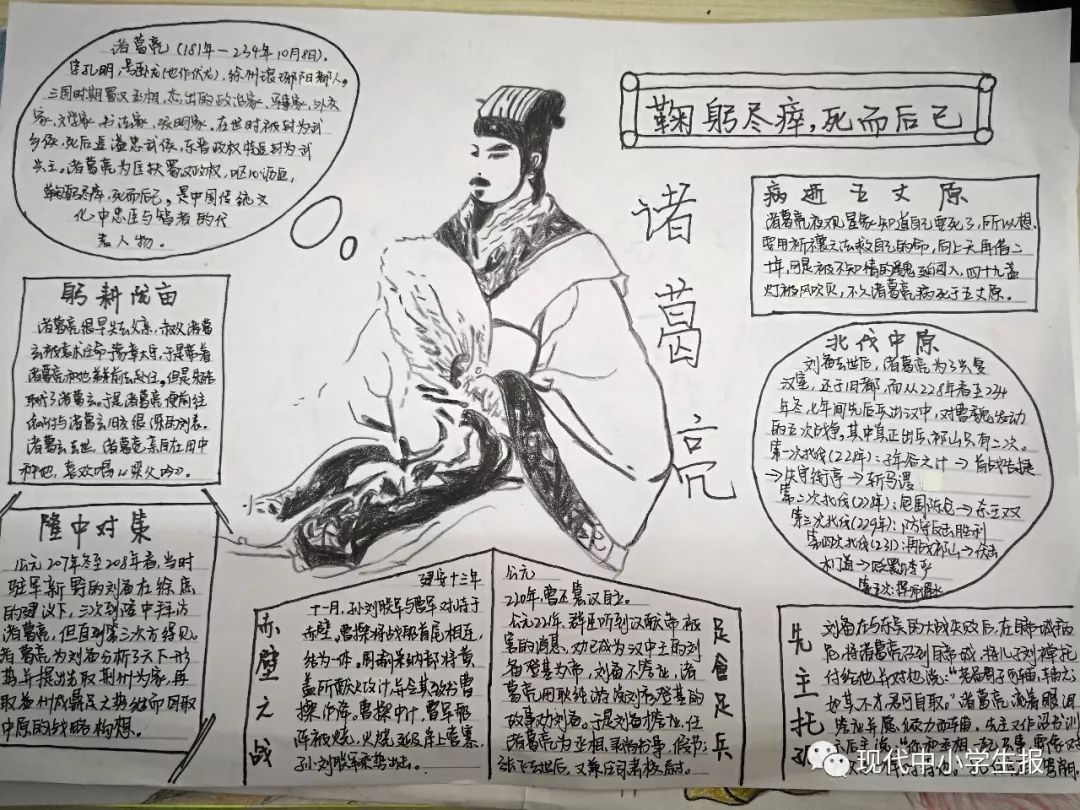 诸葛亮(181年-234年10月8日),
字孔明,号卧龙(也作伏龙),徐州琅琊阳都人,
三国时期蜀汉丞相,杰出的政治家、军事家、外交
家、文学家、书法家、发明家。在世时被封为武
乡侯,死后追谥忠武侯,东晋政权特追封为武
兴王。诸葛亮为匡扶蜀汉政权,呕心沥血,
鞠躬尽瘁,死而后已。是中国传统文
化中忠臣与智者的代
表人物。
鞠躬尽瘁,死而后已
诸葛亮
病逝五丈原
诸葛亮夜观星象,知道自己要死了,所以想
要用祈禳之法救自己的命,向上天再借二
年,可是被不知情的魏延闯入,四十九盏
灯被风吹灭,不久诸葛亮病死于五丈原。
躬耕陇亩
诸葛亮很早失去父亲,叔父诸葛
玄被袁术任命于豫章太守,于是带着
诸葛亮和他弟弟前去赴任。但是朱皓
取代了诸葛玄,于是诸葛亮便前往
诸葛玄去世,诸葛亮亲自在田中
种地,喜欢唱《梁父吟》。
北伐中原
刘备去世后,诸葛亮为了兴复
汉室,还于旧都,而从228年春至234
年冬,七年间先后兵出汉中,对曹魏发动
的五次战争,其中真正出兵祁山只有二次。
第一次北伐(228年):子午谷之计→首战告捷
→失守街亭→斩马谡
第二次北伐(228年):包围陈仓→杀王双
第三次北伐(229年):防守反击胜利
第四次北伐(231):再战祁山→伏击
木门道→废黜李平
隆中对策
公元207年冬至208年春,当时
驻军新野的刘备在徐庶
的建议下,三次到隆中拜访
诸葛亮,但直到第三次方得见。
诸葛亮为刘备分析了天下形
势,并提出先取荆州为家,再
取益州成鼎足之势,继而图取
中原的战略构想。
赤壁之战
建安十三年
十一月,孙刘联军与曹军对峙于
赤壁,曹操将战船首尾相连,
结为一体。周瑜采纳部将黄
盖所献火攻计,并令其致书曹
操诈降。曹操中计,曹军船
阵被烧,火烧延及岸上营寨,
孙刘联军乘势出击。
足食足兵
公元
220年,曹丕篡汉自立。
公元221年,群臣听到汉献帝被
害的消息,劝已成为汉中王的刘
备登基为帝,刘备不答应,诸
葛亮用耿纯游说刘秀登基的
故事劝刘备。于是刘备才答应,任
诸葛亮为丞相,录尚书事,假节;
张飞去世后,又兼任司隶校尉。
先主托孤
刘备在与东吴的大战失败后,在白帝城病
危,将诸葛亮召到白帝城,将儿子刘禅托
付给他,并对他说:“若嗣子可辅,辅之;
如其不才,君可自取。”诸葛亮流着眼泪
现代中小学生报